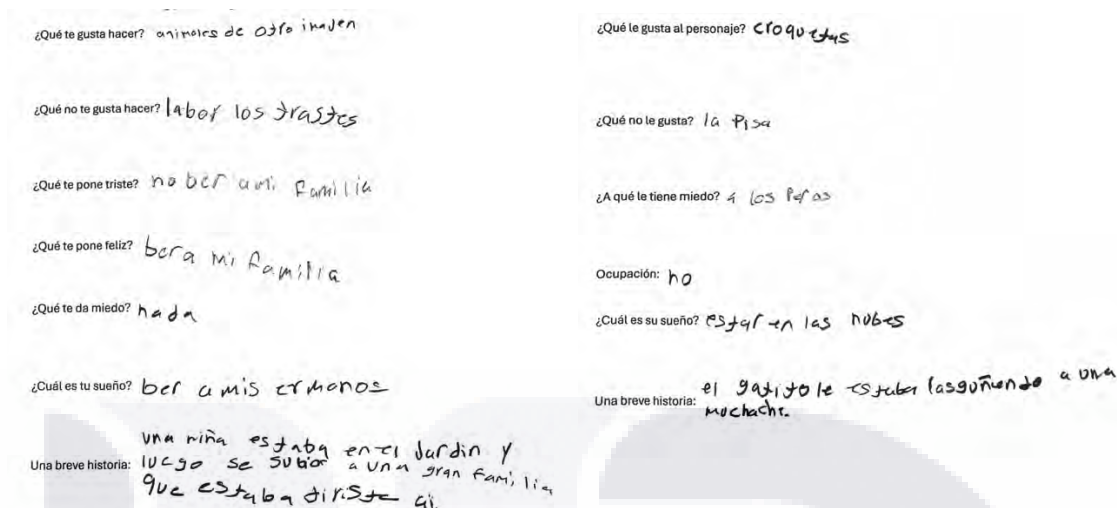 ¿Qué te gusta hacer? animales de otro imajen
¿Qué no te gusta hacer? labor los trastes
¿Qué te pone triste? no ber a mi familia
¿Qué te pone feliz? ber a mi familia
¿Qué te da miedo? nada
¿Cuál es tu sueño? ber a mis ermanos
Una breve historia: una niña estaba en el Jardin y
luego se subior a una gran familia
que estaba tiriste ai
¿Qué le gusta al personaje? croquetas
¿Qué no le gusta? la Pisa
¿A qué le tiene miedo? a los
Ocupación: no
¿Cuál es su sueño? estar en las nubes
Una breve historia: el gatito le estaba rasguñando a una
muchacha.